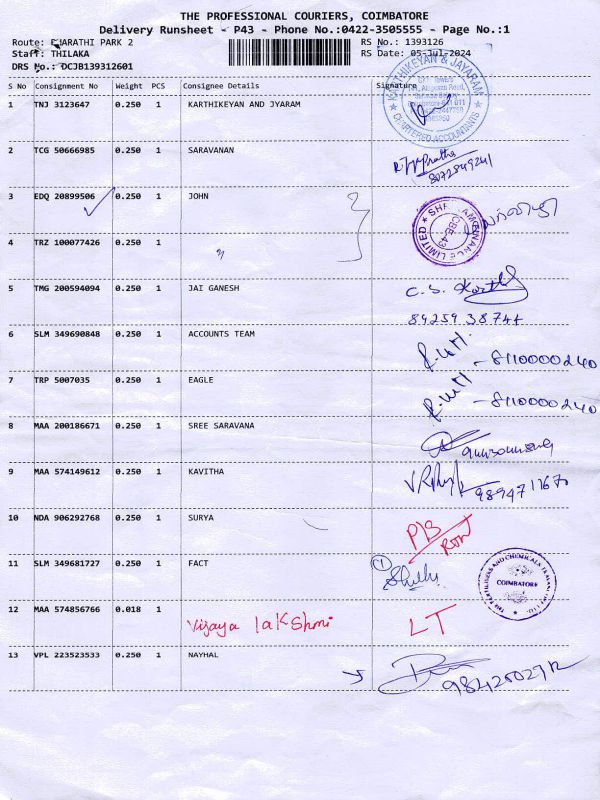 THE PROFESSIONAL COURIERS, COIMBATORE
Delivery Runsheet - P43 - Phone No.:0422-3505555 - Page No.:1
Route: BHARATHI PARK 2 RS No.: 1393126
Staff: THILAKA RS Date: 05-Jul-2024
DRS No.: DCJB139312601
S No Consignment No Weight PCS Consignee Details Signature
1 TNJ 3123647 0.250 1 KARTHIKEYAN AND JYARAM
KARTHIKEYAN & JAYARAM
CHARTERED ACCOUNTANTS
2 TCG 50666985 0.250 1 SARAVANAN
8072849241
3 EDQ 20899506 0.250 1 JOHN
CBE-43
4 TRZ 100077426 0.250 1
5 TMG 200594094 0.250 1 JAI GANESH C. S. Karthik
89259 38744
6 SLM 349690848 0.250 1 ACCOUNTS TEAM - 8110000240
7 TRP 5007035 0.250 1 EAGLE - 8110000240
8 MAA 200186671 0.250 1 SREE SARAVANA
9 MAA 574149612 0.250 1 KAVITHA
10 NDA 906292768 0.250 1 SURYA P/B
11 SLM 349681727 0.250 1 FACT
COIMBATORE
12 MAA 574856766 0.018 1 Vijaya lakshmi LT
13 VPL 223523533 0.250 1 NAYHAL